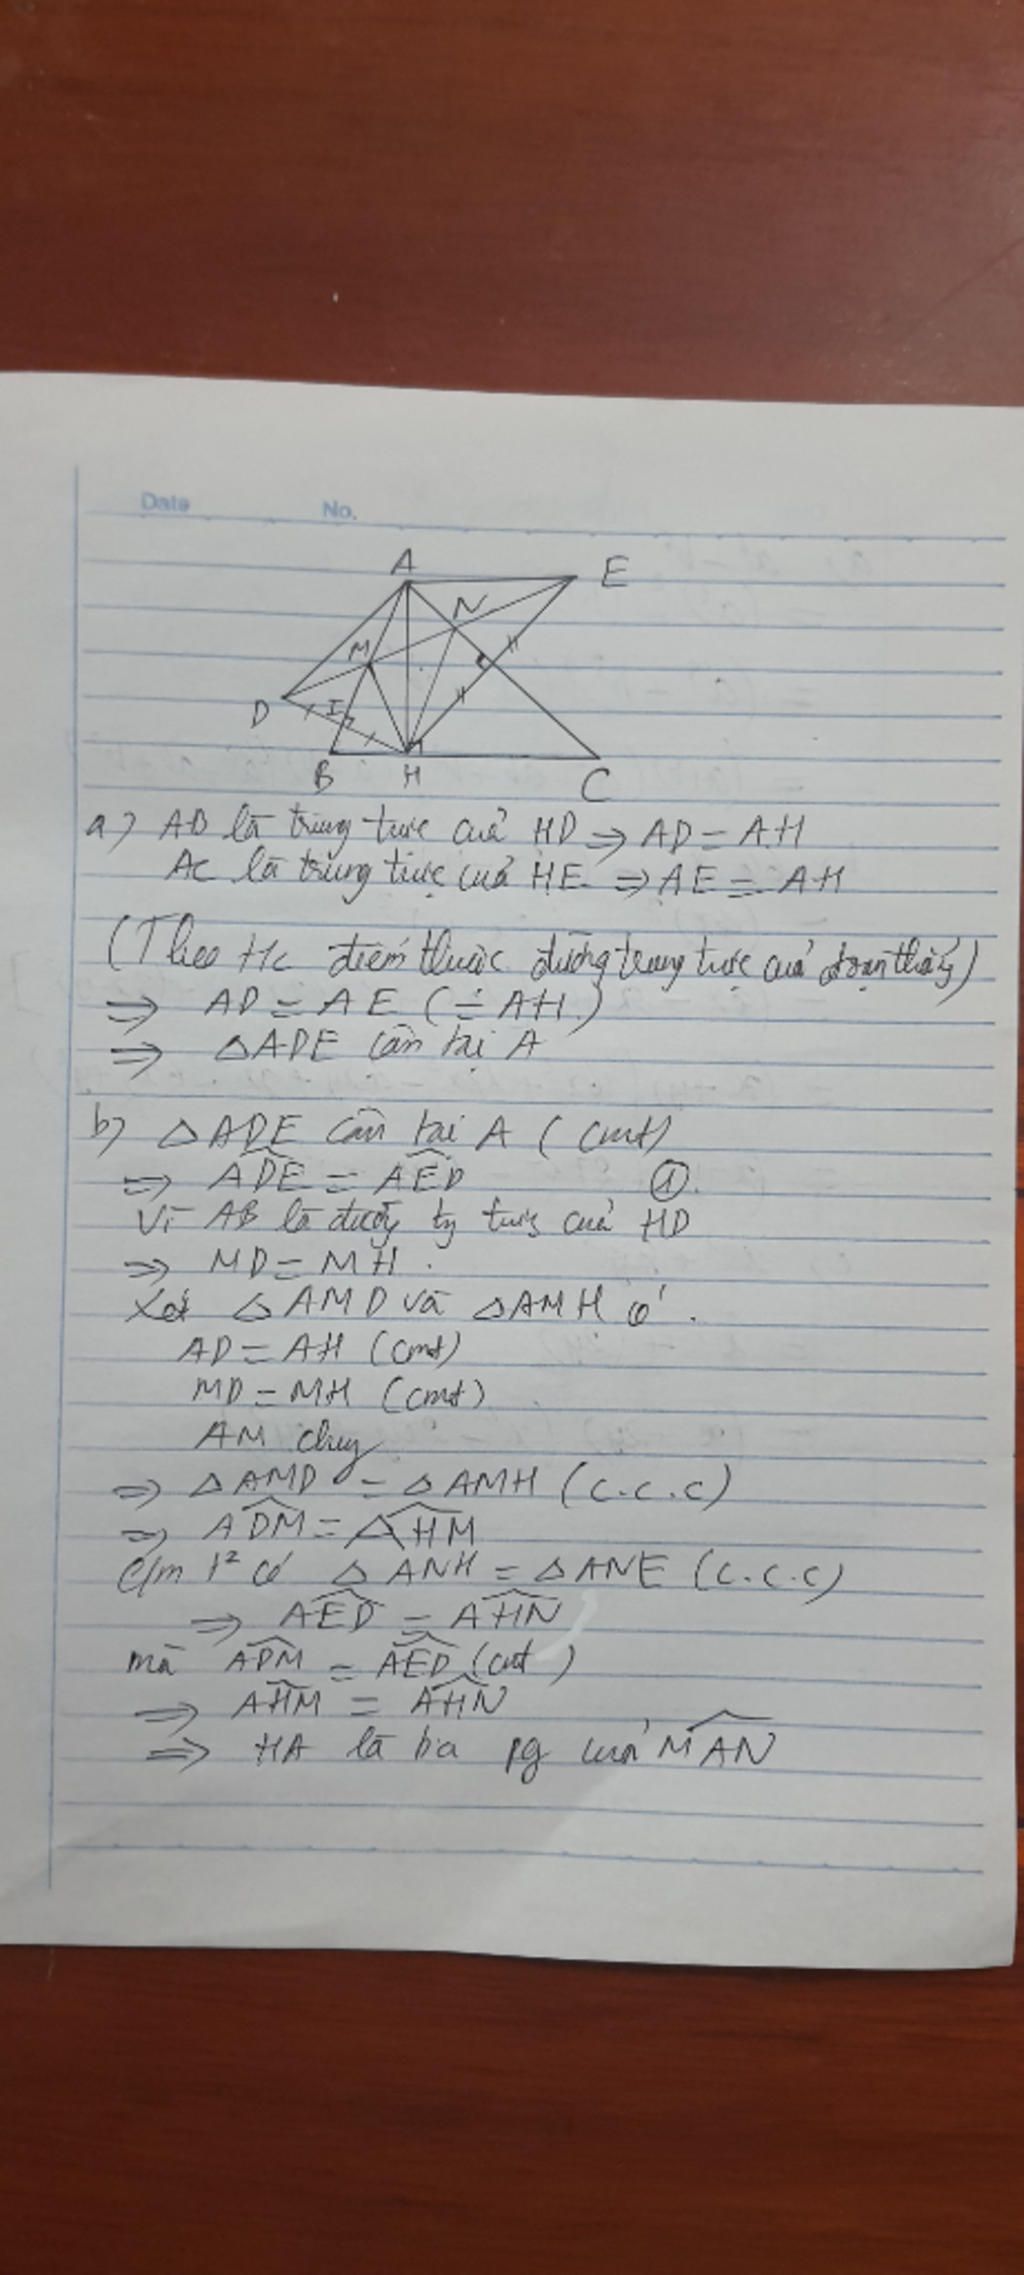 Date No.
A E
N
M
D I
B H C
a) AB là trung trực của HD => AD = AH
AC là trung trực của HE => AE = AH
(Theo t/c điểm thuộc đường trung trực của đoạn thẳng)
=> AD = AE (= AH)
=> △ADE cân tại A
b) △ADE cân tại A (cmt)
=> \widehat{ADE} = \widehat{AED} ①
Vì AB là đường tg trực của HD
=> MD = MH.
Xét △AMD và △AMH có.
AD = AH (cmt)
MD = MH (cmt)
AM chung
=> △AMD = △AMH (c.c.c)
=> \widehat{ADM} = \widehat{AHM}
C/m t² có △ANH = △ANE (c.c.c)
=> \widehat{AED} = \widehat{AHN}
mà \widehat{ADM} = \widehat{AED} (cmt)
=> \widehat{AHM} = \widehat{AHN}
=> HA là tia pg của \widehat{MAN}